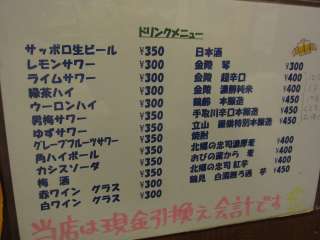 ドリンクメニュー
サッポロ生ビール ¥350
レモンサワー ¥300
ライムサワー ¥300
緑茶ハイ ¥300
ウーロンハイ ¥300
男梅サワー ¥350
ゆずサワー ¥350
グレープフルーツサワー ¥350
角ハイボール ¥350
カシスソーダ ¥350
梅酒 ¥300
赤ワイン グラス ¥300
白ワイン グラス ¥300
日本酒
金陵 琴 ¥300
金陵 超辛口 ¥400
金陵 濃醇純米 ¥400
鶴齢 本醸造 ¥450
手取川辛口本醸造 ¥450
立山 特別本醸造 ¥450
焼酎
北郷の忠司濃厚麦 ¥400
おびの蔵から 麦 ¥400
北郷の忠司 紅芋 ¥400
鶴見 白濁無ろ過 芋 ¥450
当店は現金引換え会計です